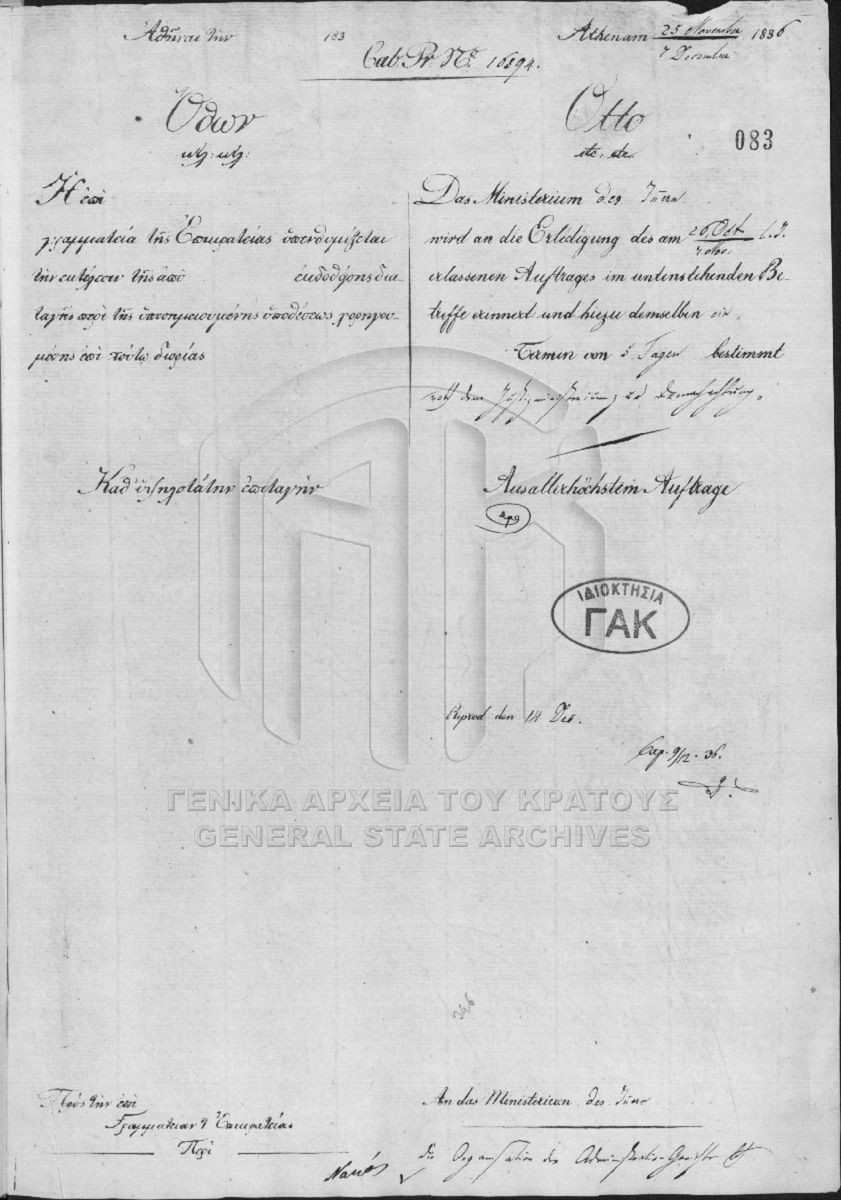 Ἀθῆναι τὴν 183
Athen am 25 November / 7 December 1836
Cab. Pr. Nº 16894.
Ὄθων
κτλ: κτλ:
Otto
etc. etc.
083
Ἡ ἐπὶ
γραμματεία τῆς Ἐπικρατείας ὑπενθυμίζεται
τὴν ἐκτέλεσιν τῆς ἀπὸ ἐκδοθείσης δια-
ταγῆς περὶ τῆς ὑποσημειουμένης ὑποθέσεως χορηγου-
μένης ἐπὶ τούτῳ διορίας
Das Ministerium des Innern
wird an die Erledigung des am 26 Oct / 7 Nov. l. J.
erlassenen Auftrages im untenstehenden Be-
treffe erinnert und hiezu demselben ein
Termin von 5 Tagen bestimmt
Καθ' ὑψηλοτάτην ἐπιταγὴν
Aus allerhöchstem Auftrage
ΙΔΙΟΚΤΗΣΙΑ
ΓΑΚ
Reprod den 14 Dec.
Exp. 9/12. 36.
ΓΕΝΙΚΑ ΑΡΧΕΙΑ ΤΟΥ ΚΡΑΤΟΥΣ
GENERAL STATE ARCHIVES
346
Πρὸς τὴν ἐπὶ
Γραμματείαν τ Ἐπικρατείας
Περὶ
An das Ministerium des Innern
die Organisation der Administration Gerichte